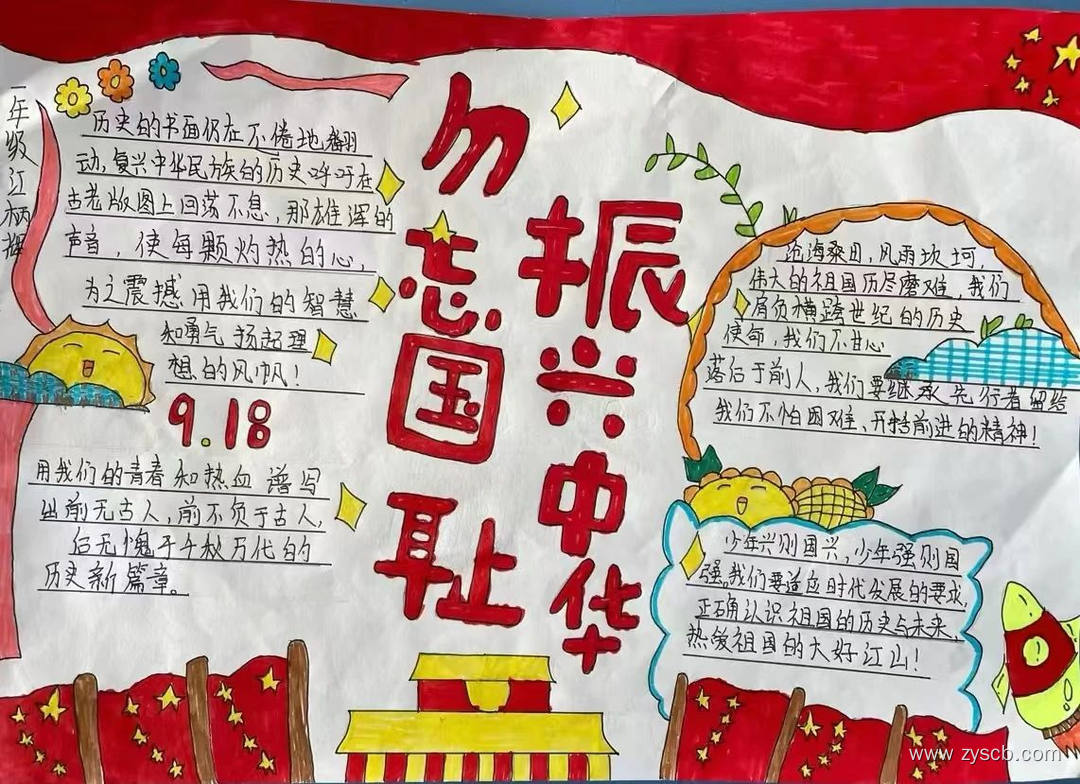 勿忘国耻
振兴中华
一年级 江柄
历史的书面仍在不倦地翻
动,复兴中华民族的历史呼吁在
古老版图上回荡不息,那雄浑的
声音,使每颗灼热的心,
为之震撼用我们的智慧
和勇气扬起理
想的风帆!
9.18
用我们的青春和热血谱写
出前无古人,前不负于古人,
后无愧于千秋万代的
历史新篇章。
沧海桑田,风雨坎坷,
伟大的祖国历尽磨难,我们
肩负横跨世纪的历史
使命,我们不甘心
落后于前人,我们要继承先行者留给
我们不怕困难、开拓前进的精神!
少年兴则国兴,少年强则国
强。我们要适应时代发展的要求,
正确认识祖国的历史与未来,
热爱祖国的大好江山!
www.zyscb.com